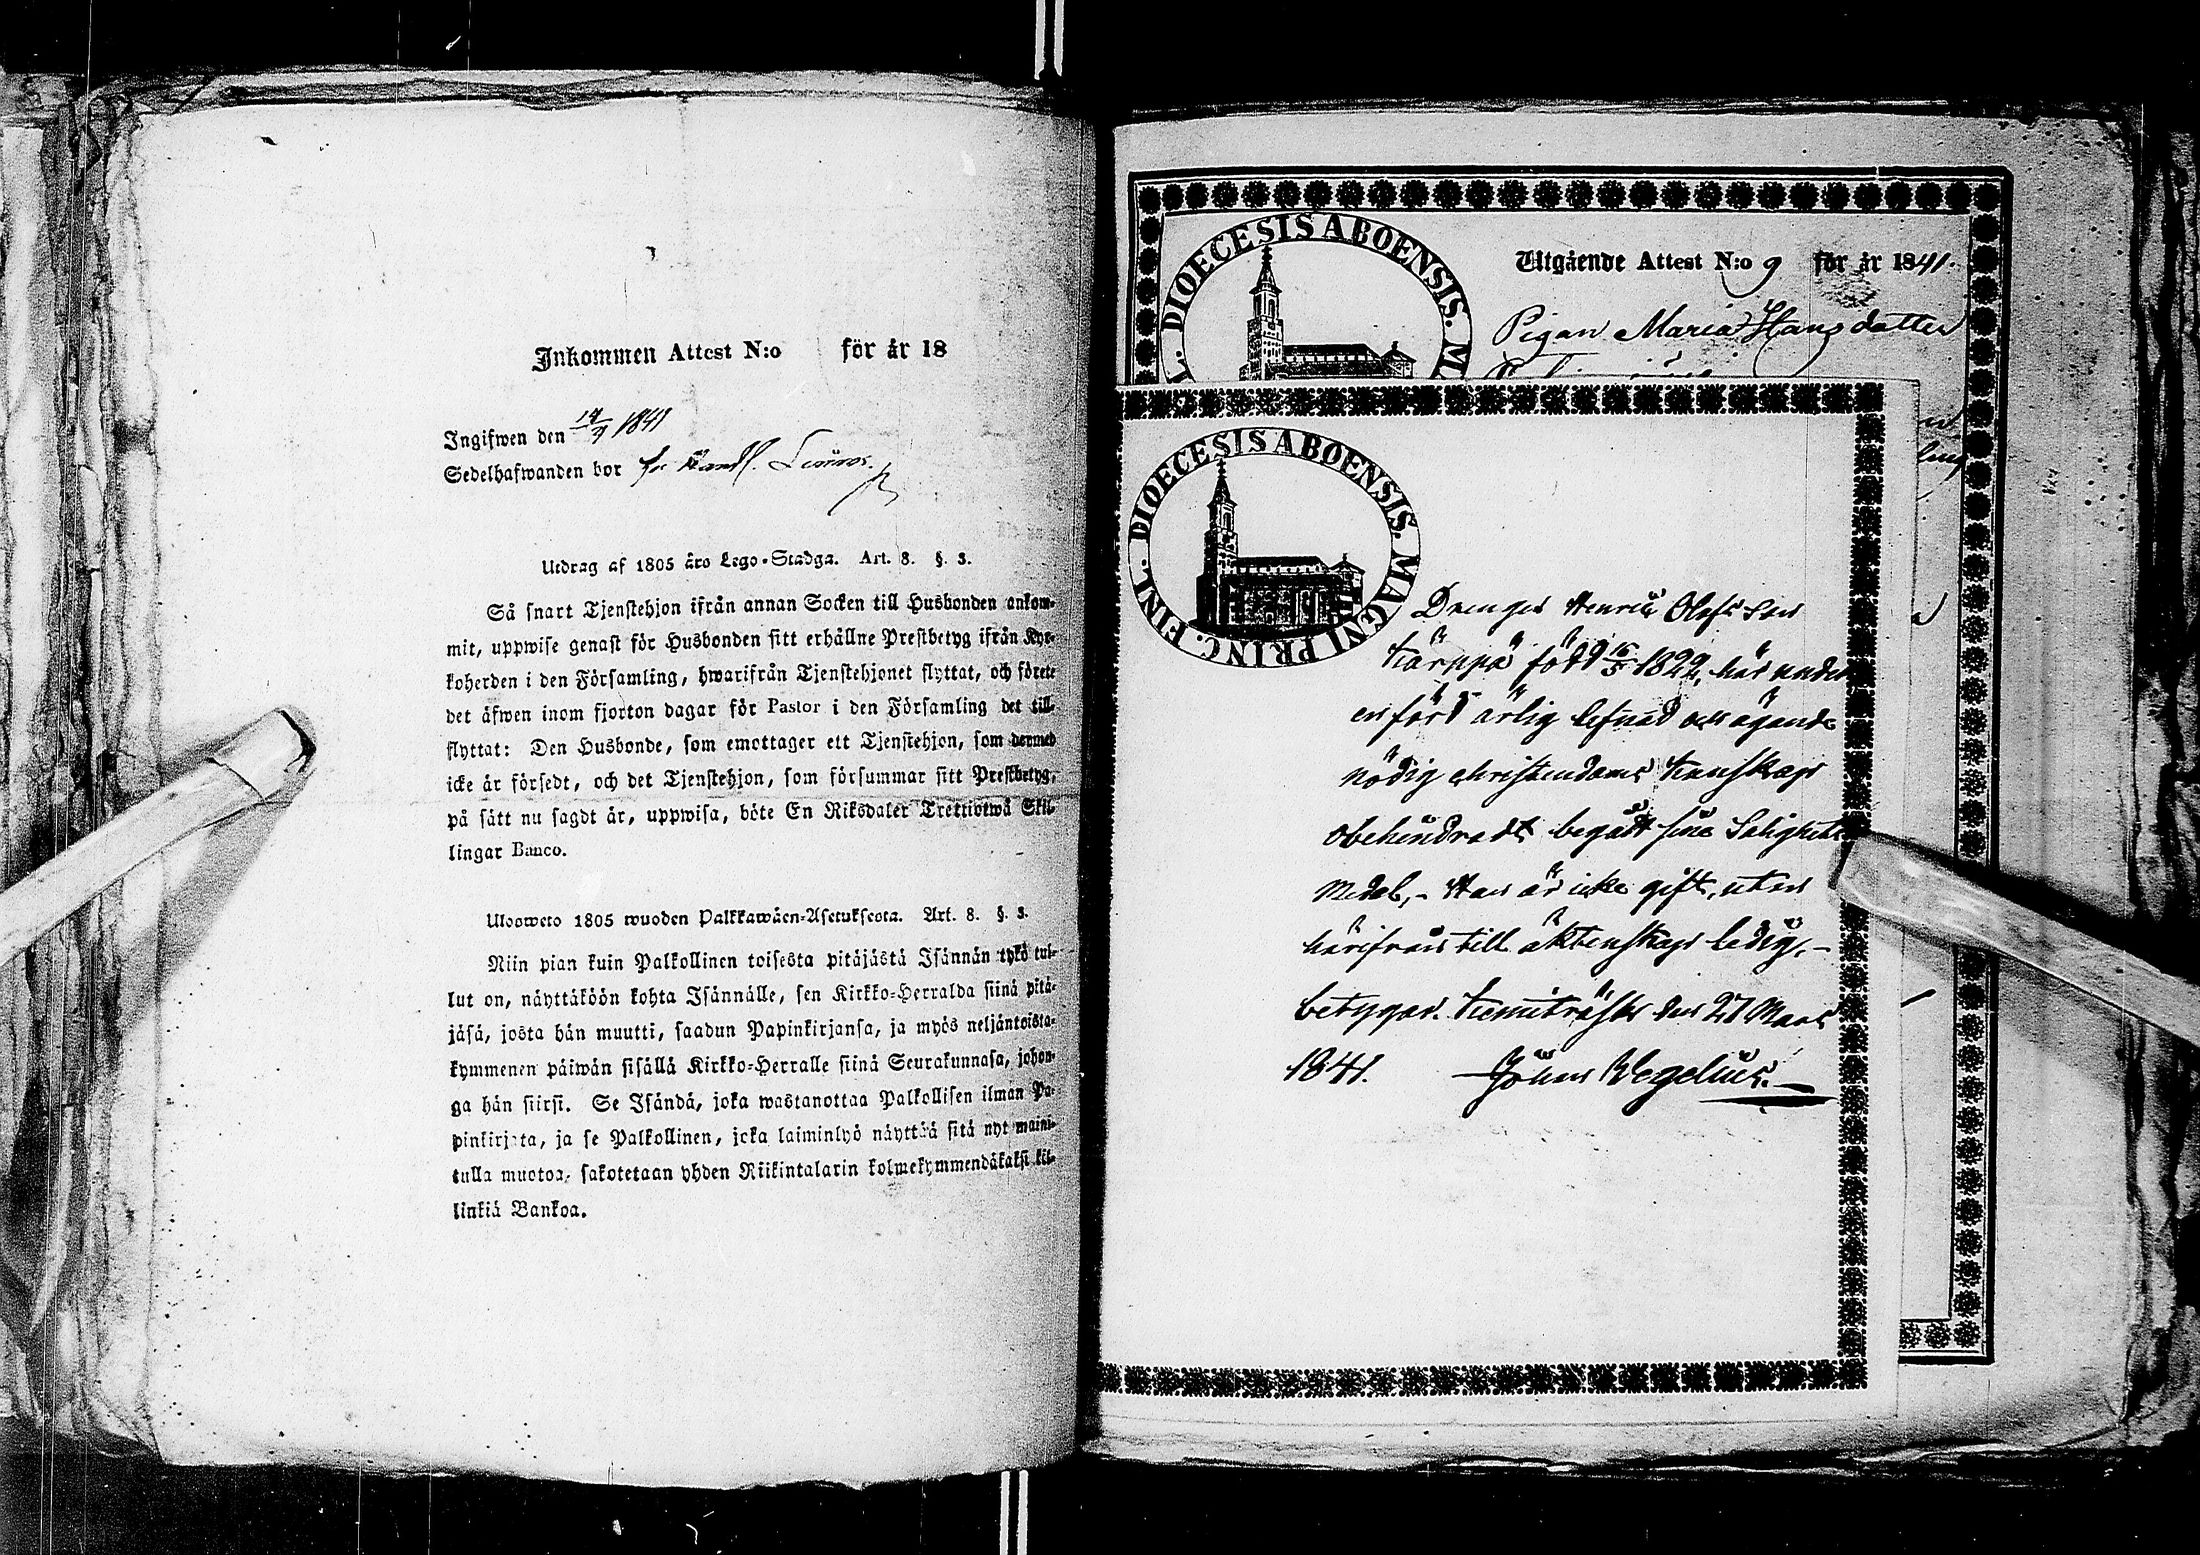 Inkommen Attest N:o för år 18
Ingifwen den 14/9 1841
Sedelhafwanden bor
Utdrag af 1805 års Lego-Stadga. Art. 8. §. 3.
Så snart Tjenstehjon ifrån annan Socken till Husbonden ankom-
mit, uppwise genast för Husbonden sitt erhållne Prestbetyg ifrån Kyr-
koherden i den Församling, hwarifrån Tjenstehjonet flyttat, och förete
det äfwen inom fjorton dagar för Pastor i den Församling det till-
flyttat: Den Husbonde, som emottager ett Tjenstehjon, som dermed
icke är försedt, och det Tjenstehjon, som försummar sitt Prestbetyg,
på sätt nu sagdt är, uppwisa, böte En Riksdaler Trettiotwå Skil-
lingar Banco.
Ulosweto 1805 wuoden Palkkawäen-Asetuksesta. Art. 8. §. 3.
Niin pian kuin Palkollinen toisesta pitäjästä Isännän tykö tul-
lut on, näyttäköön kohta Isännälle, sen Kirkko-Herralda siinä pitä-
jäsä, josta hän muutti, saadun Papinkirjansa, ja myös neljäntoista-
kymmenen päiwän sisällä Kirkko-Herralle siinä Seurakunnasa, johon-
ga hän siirsi. Se Isändä, joka wastanottaa Palkollisen ilman Pa-
pinkirjata, ja se Palkollinen, joka laiminlyö näyttää sitä nyt maini-
tulla muotoa, sakotetaan yhden Riikintalarin kolmekymmendäkaksi kil-
linkiä Bankoa.
DIOECESIS ABOENSIS. MA
Utgående Attest N:o 9 för år 1841.
Pigan Maria Hansdotter
DIOECESIS ABOENSIS. MAGNI PRINC. FINL.
Drengen Henric Olofs Son
Kärppä född 16/5 1822, här under
en förd ärlig lefnad och ägande
nödig christendoms kunskap
obehindradt begått sine Salighets
Medel,- Han är icke gift, utan
härifrån till äktenskap ledig,-
betygar. Kemiträsk den 27 Mars
1841. Johan Wegelius.